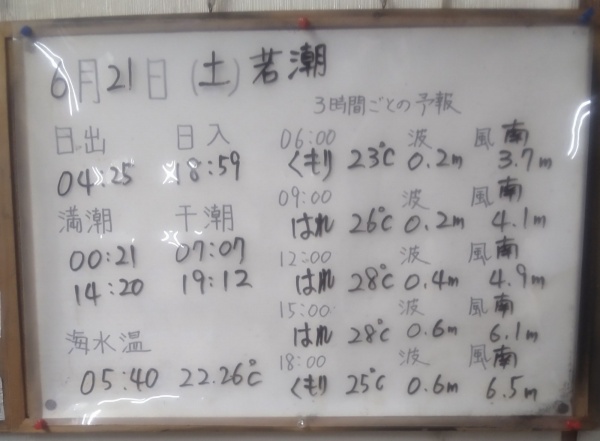 6月21日 (土) 若潮
3時間ごとの予報
日出 日入
04:25 18:59
満潮 干潮
00:21 07:07
14:20 19:12
海水温
05:40 22.26℃
06:00 波 風 南
くもり 23℃ 0.2m 3.7m
09:00 波 風 南
はれ 26℃ 0.2m 4.1m
12:00 波 風 南
はれ 28℃ 0.4m 4.9m
15:00 波 風 南
はれ 28℃ 0.6m 6.1m
18:00 波 風 南
くもり 25℃ 0.6m 6.5m